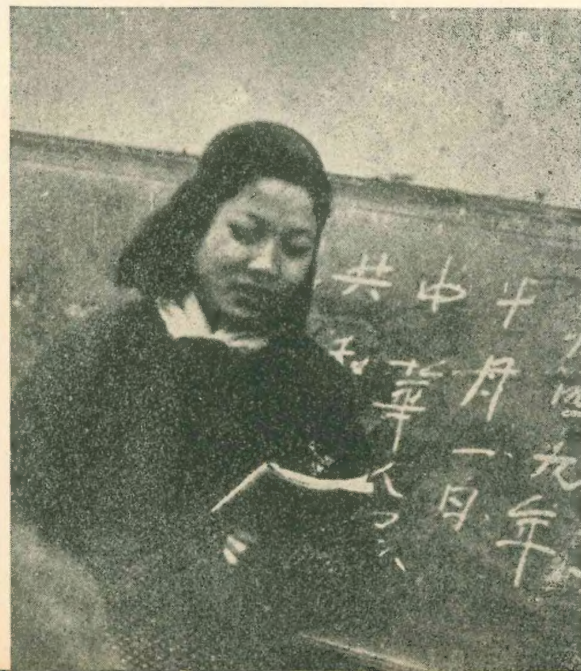 四九年
十月一日
中華人民
共和